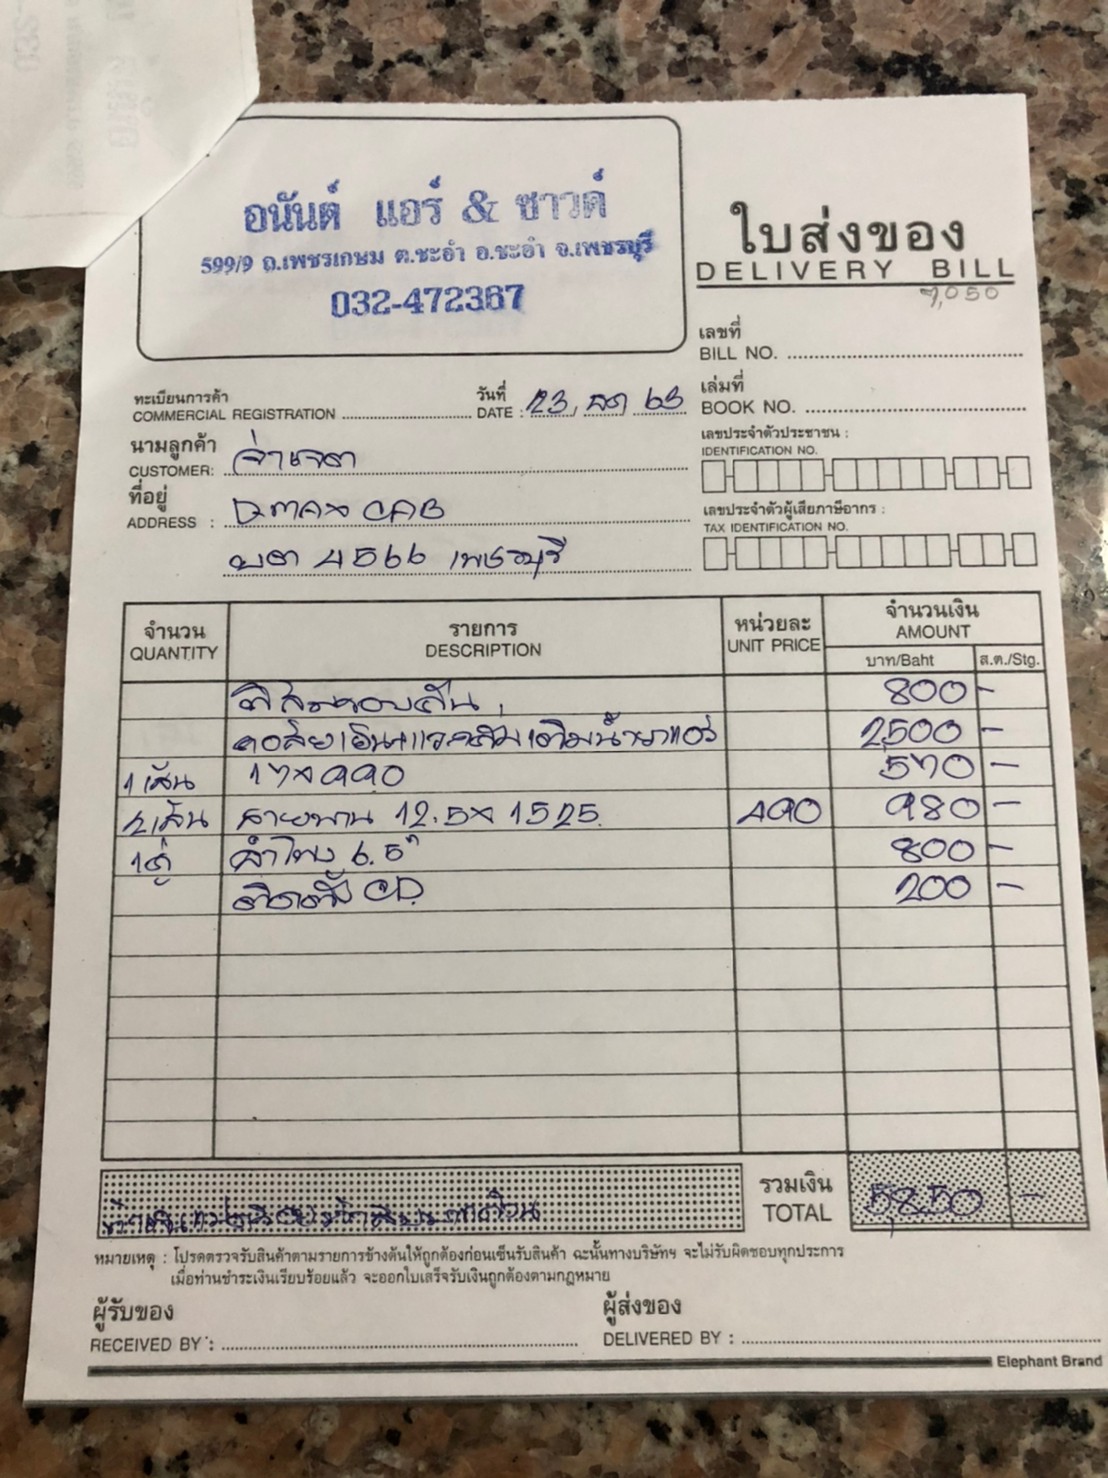 อนันต์ แอร์ & ซาวด์
599/9 ถ.เพชรเกษม ต.ชะอำ อ.ชะอำ จ.เพชรบุรี
032-472367
ใบส่งของ
DELIVERY BILL
7,050
เลขที่
BILL NO.
ทะเบียนการค้า
COMMERCIAL REGISTRATION
วันที่
DATE : 23, ตค 63
เล่มที่
BOOK NO.
นามลูกค้า
CUSTOMER:
เลขประจำตัวประชาชน :
IDENTIFICATION NO.
ที่อยู่
ADDRESS : D.max CAB
4566 เพชรบุรี
เลขประจำตัวผู้เสียภาษีอากร :
TAX IDENTIFICATION NO.
จำนวน
QUANTITY
รายการ
DESCRIPTION
หน่วยละ
UNIT PRICE
จำนวนเงิน
AMOUNT
บาท/Baht ส.ต./Stg.
800 -
คอล์ยเย็น เติมน้ำยาแอร์ 2500 -
1 เส้น 17x990 570 -
2 เส้น สายพาน 12.5x1525 490 980 -
1 คู่ ลำโพง 6.5" 800 -
ติดตั้ง CD. 200 -
รวมเงิน
TOTAL 5,850 -
หมายเหตุ : โปรดตรวจรับสินค้าตามรายการข้างต้นให้ถูกต้องก่อนเซ็นรับสินค้า ฉะนั้นทางบริษัทฯ จะไม่รับผิดชอบทุกประการ
เมื่อท่านชำระเงินเรียบร้อยแล้ว จะออกใบเสร็จรับเงินถูกต้องตามกฎหมาย
ผู้รับของ
RECEIVED BY :
ผู้ส่งของ
DELIVERED BY :
Elephant Brand